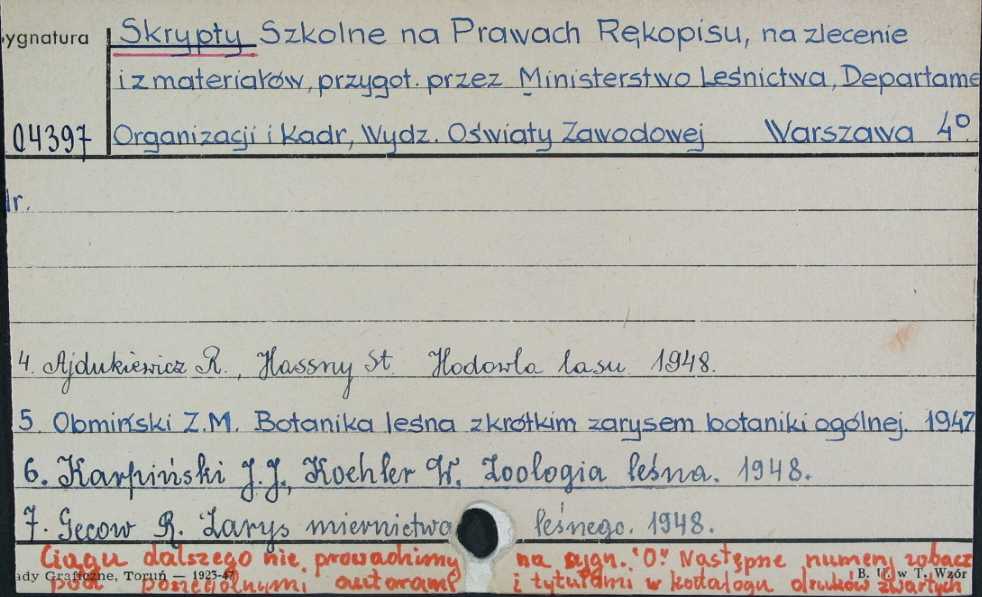 ygnatura Skrypty Szkolne na Prawach Rękopisu, na zlecenie
i z materiałów, przygot. przez Ministerstwo Leśnictwa, Departame
04397 Organizacji i Kadr, Wydz. Oświaty Zawodowej Warszawa 4°.
Nr.
4. Ajdukiewicz R., Hassny St. Hodowla lasu 1948.
5. Obmiński Z.M. Botanika leśna z krótkim zarysem botaniki ogólnej. 1947
6. Karpiński J.J., Koehler W. Zoologia leśna. 1948.
7. Gecow R. Zarys miernictwa leśnego. 1948.
Ciągu dalszego nie prowadzimy na sygn. "O". Następne numery zobacz
pod poszczególnymi autorami i tytułami w katalogu druków zwartych
ady Graficzne, Toruń — 1923-47 B. U. w T. Wzór